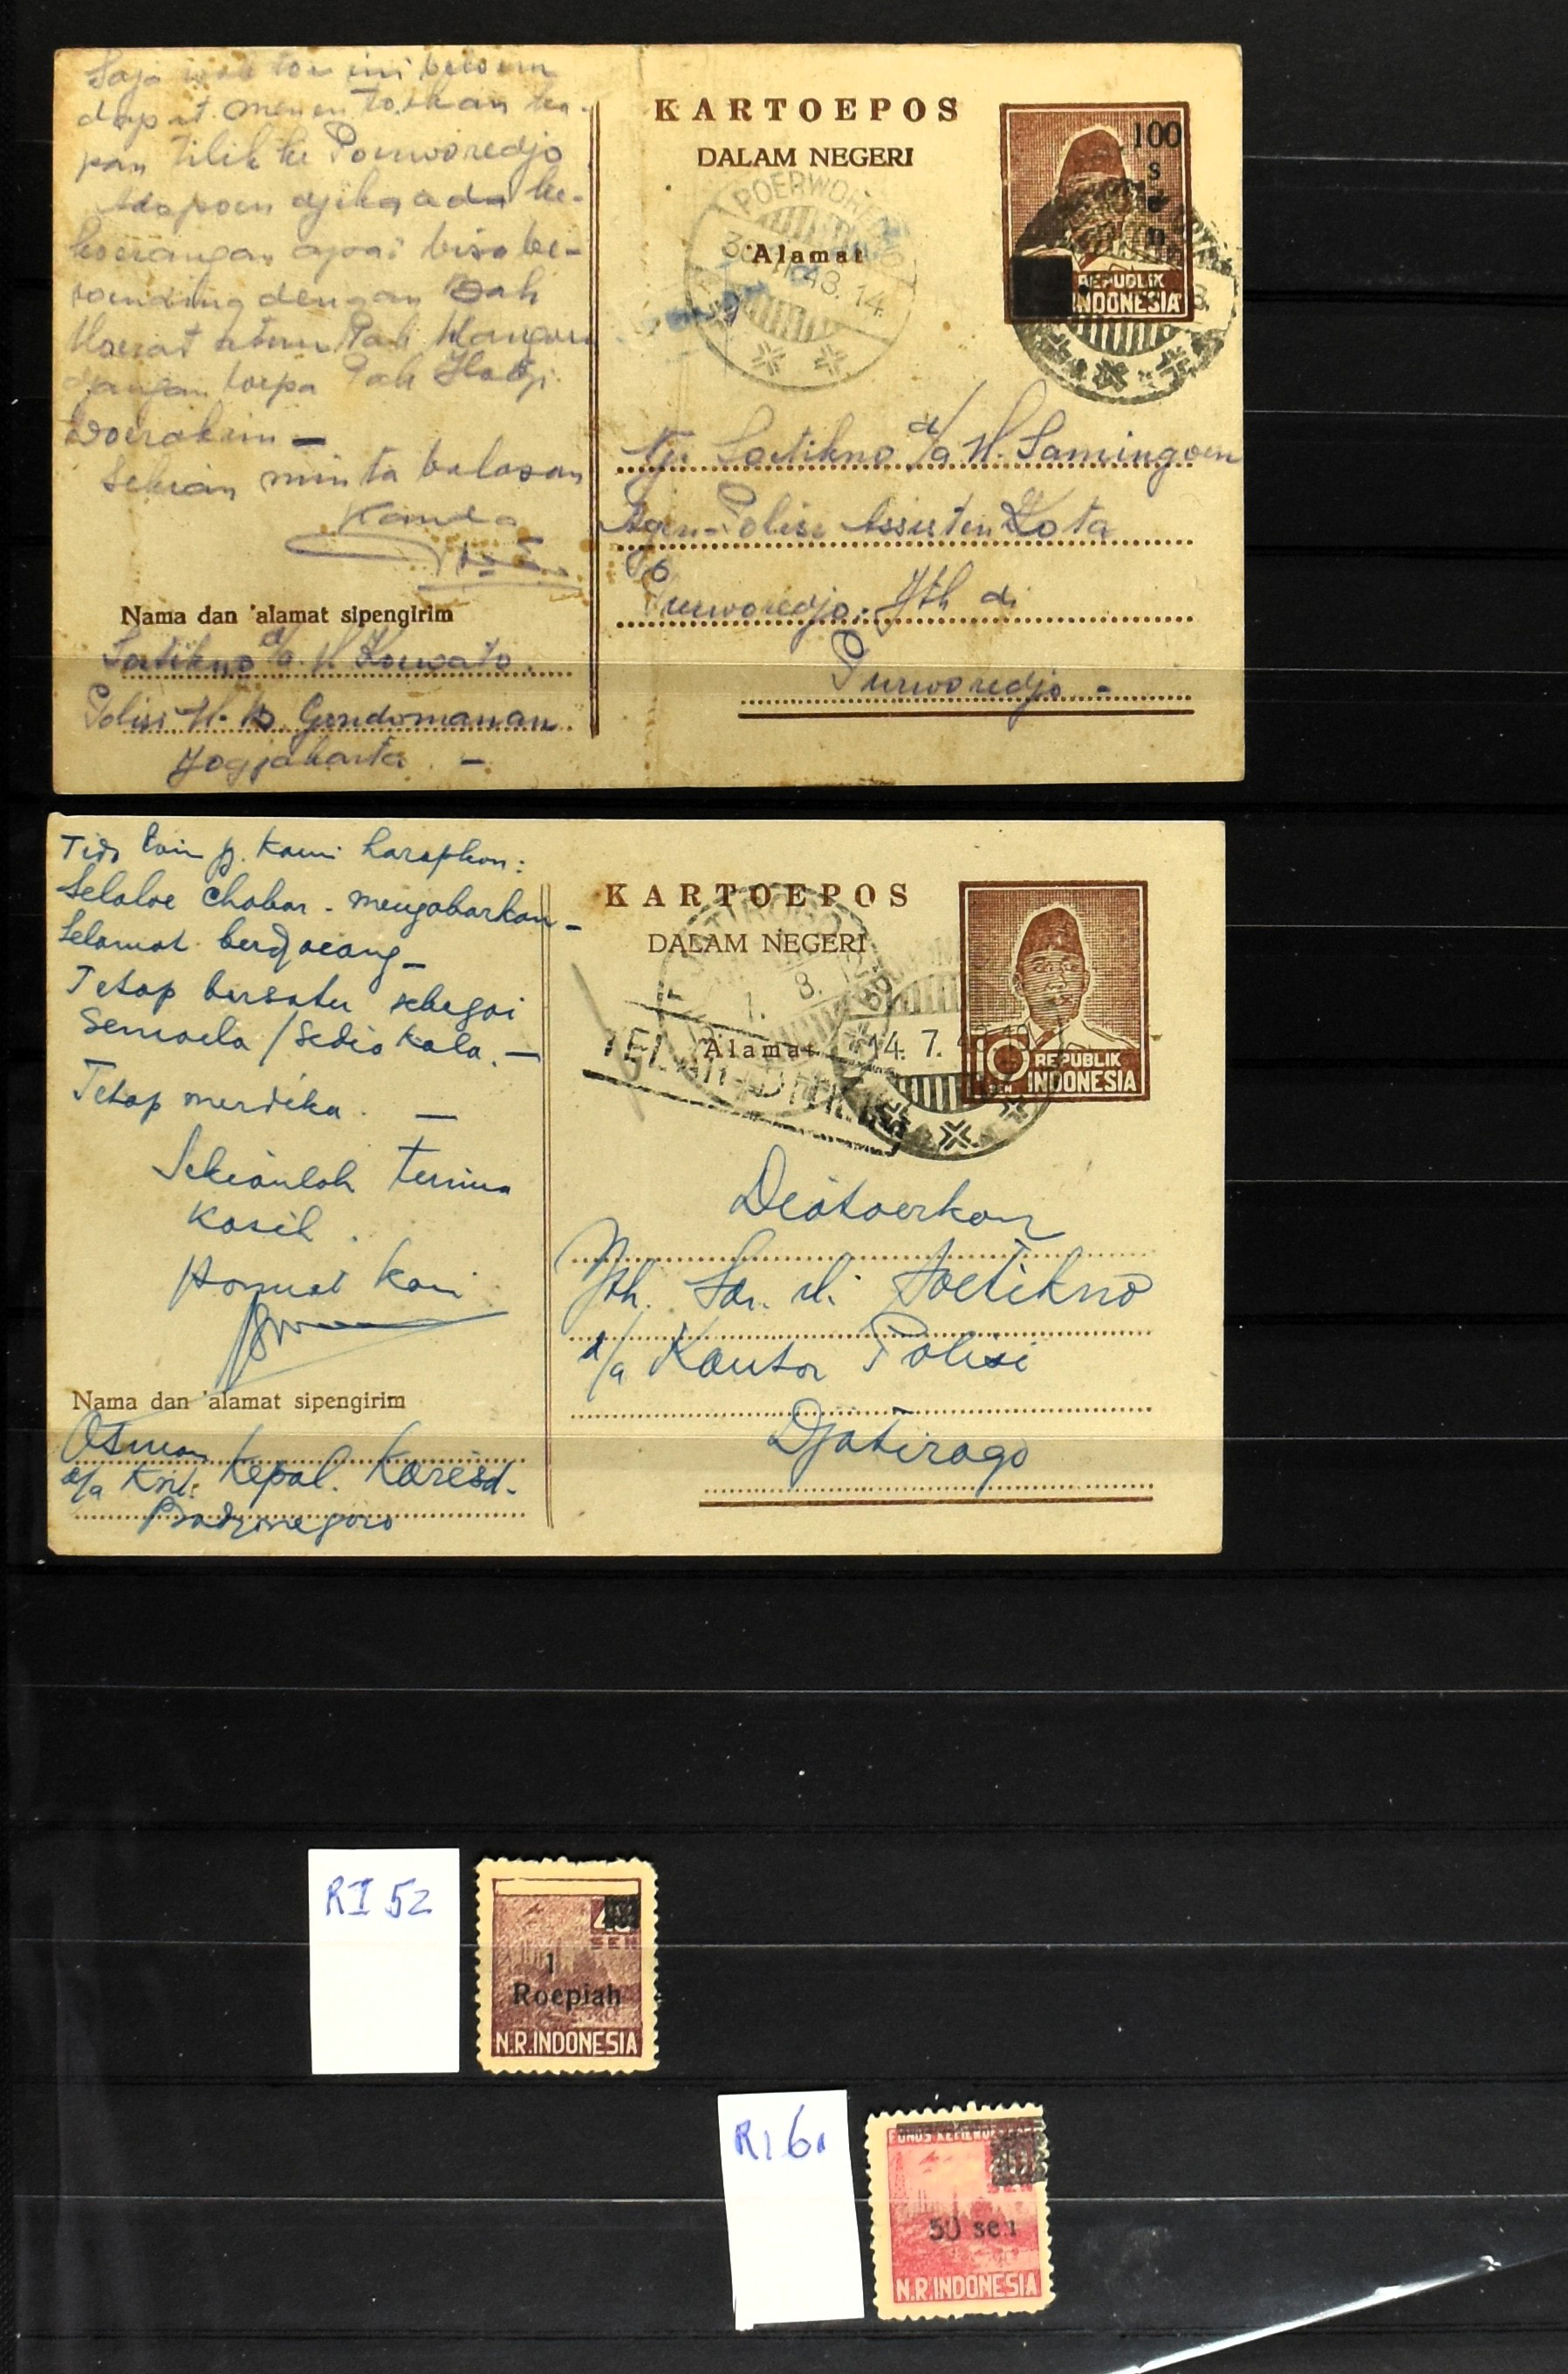 Saja waktoe ini beloem
dapat menentoekan ka-
pan tilik ke Poerworedjo
Adapoen djika ada ke-
koerangan apa2 bisa be-
roending dengan Pak
atau Pak
djangan loepa Pak Hadji
Sekian minta balasan
Kanda
Nama dan 'alamat sipengirim
Soetikno d/a. H. Koewato.
Polisi H. B. Gondomanan.
Jogjakarta. -
KARTOEPOS
DALAM NEGERI
'Alamat
POERWOREDJO
48. 14.
100
sen
REPUBLIK
INDONESIA
Nji Soetikno d/a H. Samingoen
Agen-Polisi Assisten Kota
Purworedjo. Jth di
Purworedjo -
kami harapkan:
Selaloe chabar-mengabarkan -
Selamat berdjoeang -
Tetap bersatu sebagai
semoela / sedia kala. -
Tetap merdika. -
Sekianlah terima
kasih.
Hormat kami
Nama dan 'alamat sipengirim
Osman
d/a Kepal. Karesd.
Bodjonegoro
KARTOEPOS
DALAM NEGERI
'Alamat
14. 7.
10
SEN
REPUBLIK
INDONESIA
Diatoerkan
Jth. Soetikno
d/a Kantor Polisi
Djatirogo
RI 52
SEN
1
Roepiah
N.R.INDONESIA
RI 61
50 sen
N.R.INDONESIA